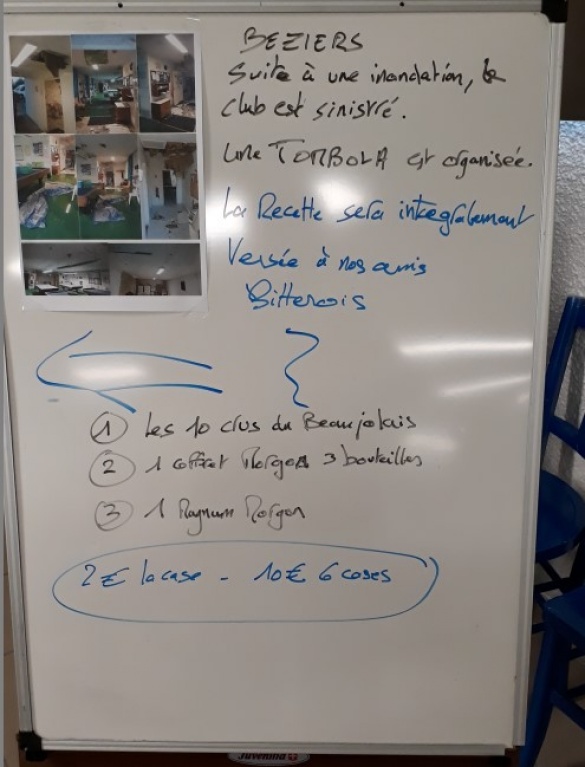 BEZIERS
Suite à une inondation, le
club est sinistré.
Une TOMBOLA est organisée.
La Recette sera integralement
Versée à nos amis
Bitterois
1 Les 10 crus du Beaujolais
2 1 coffret Morgon 3 bouteilles
3 1 Magnum Morgon
2€ la case - 10€ 6 cases
Juvenilia